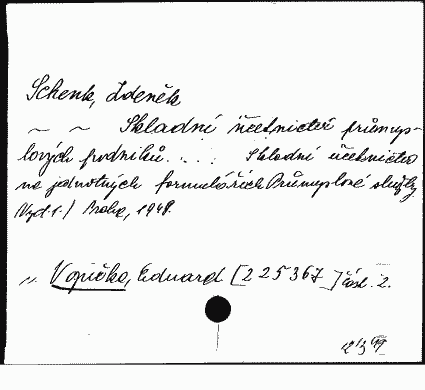 Schenk, Zdeněk
~ ~ Skladní účetnictví průmys-
lových podniků. . . . Skladní účetnictví
na jednotných formulářích Průmyslové služby.
(Vyd. 1.) Praha, 1948.
„ Vopička, Eduard [225367] část. 2.